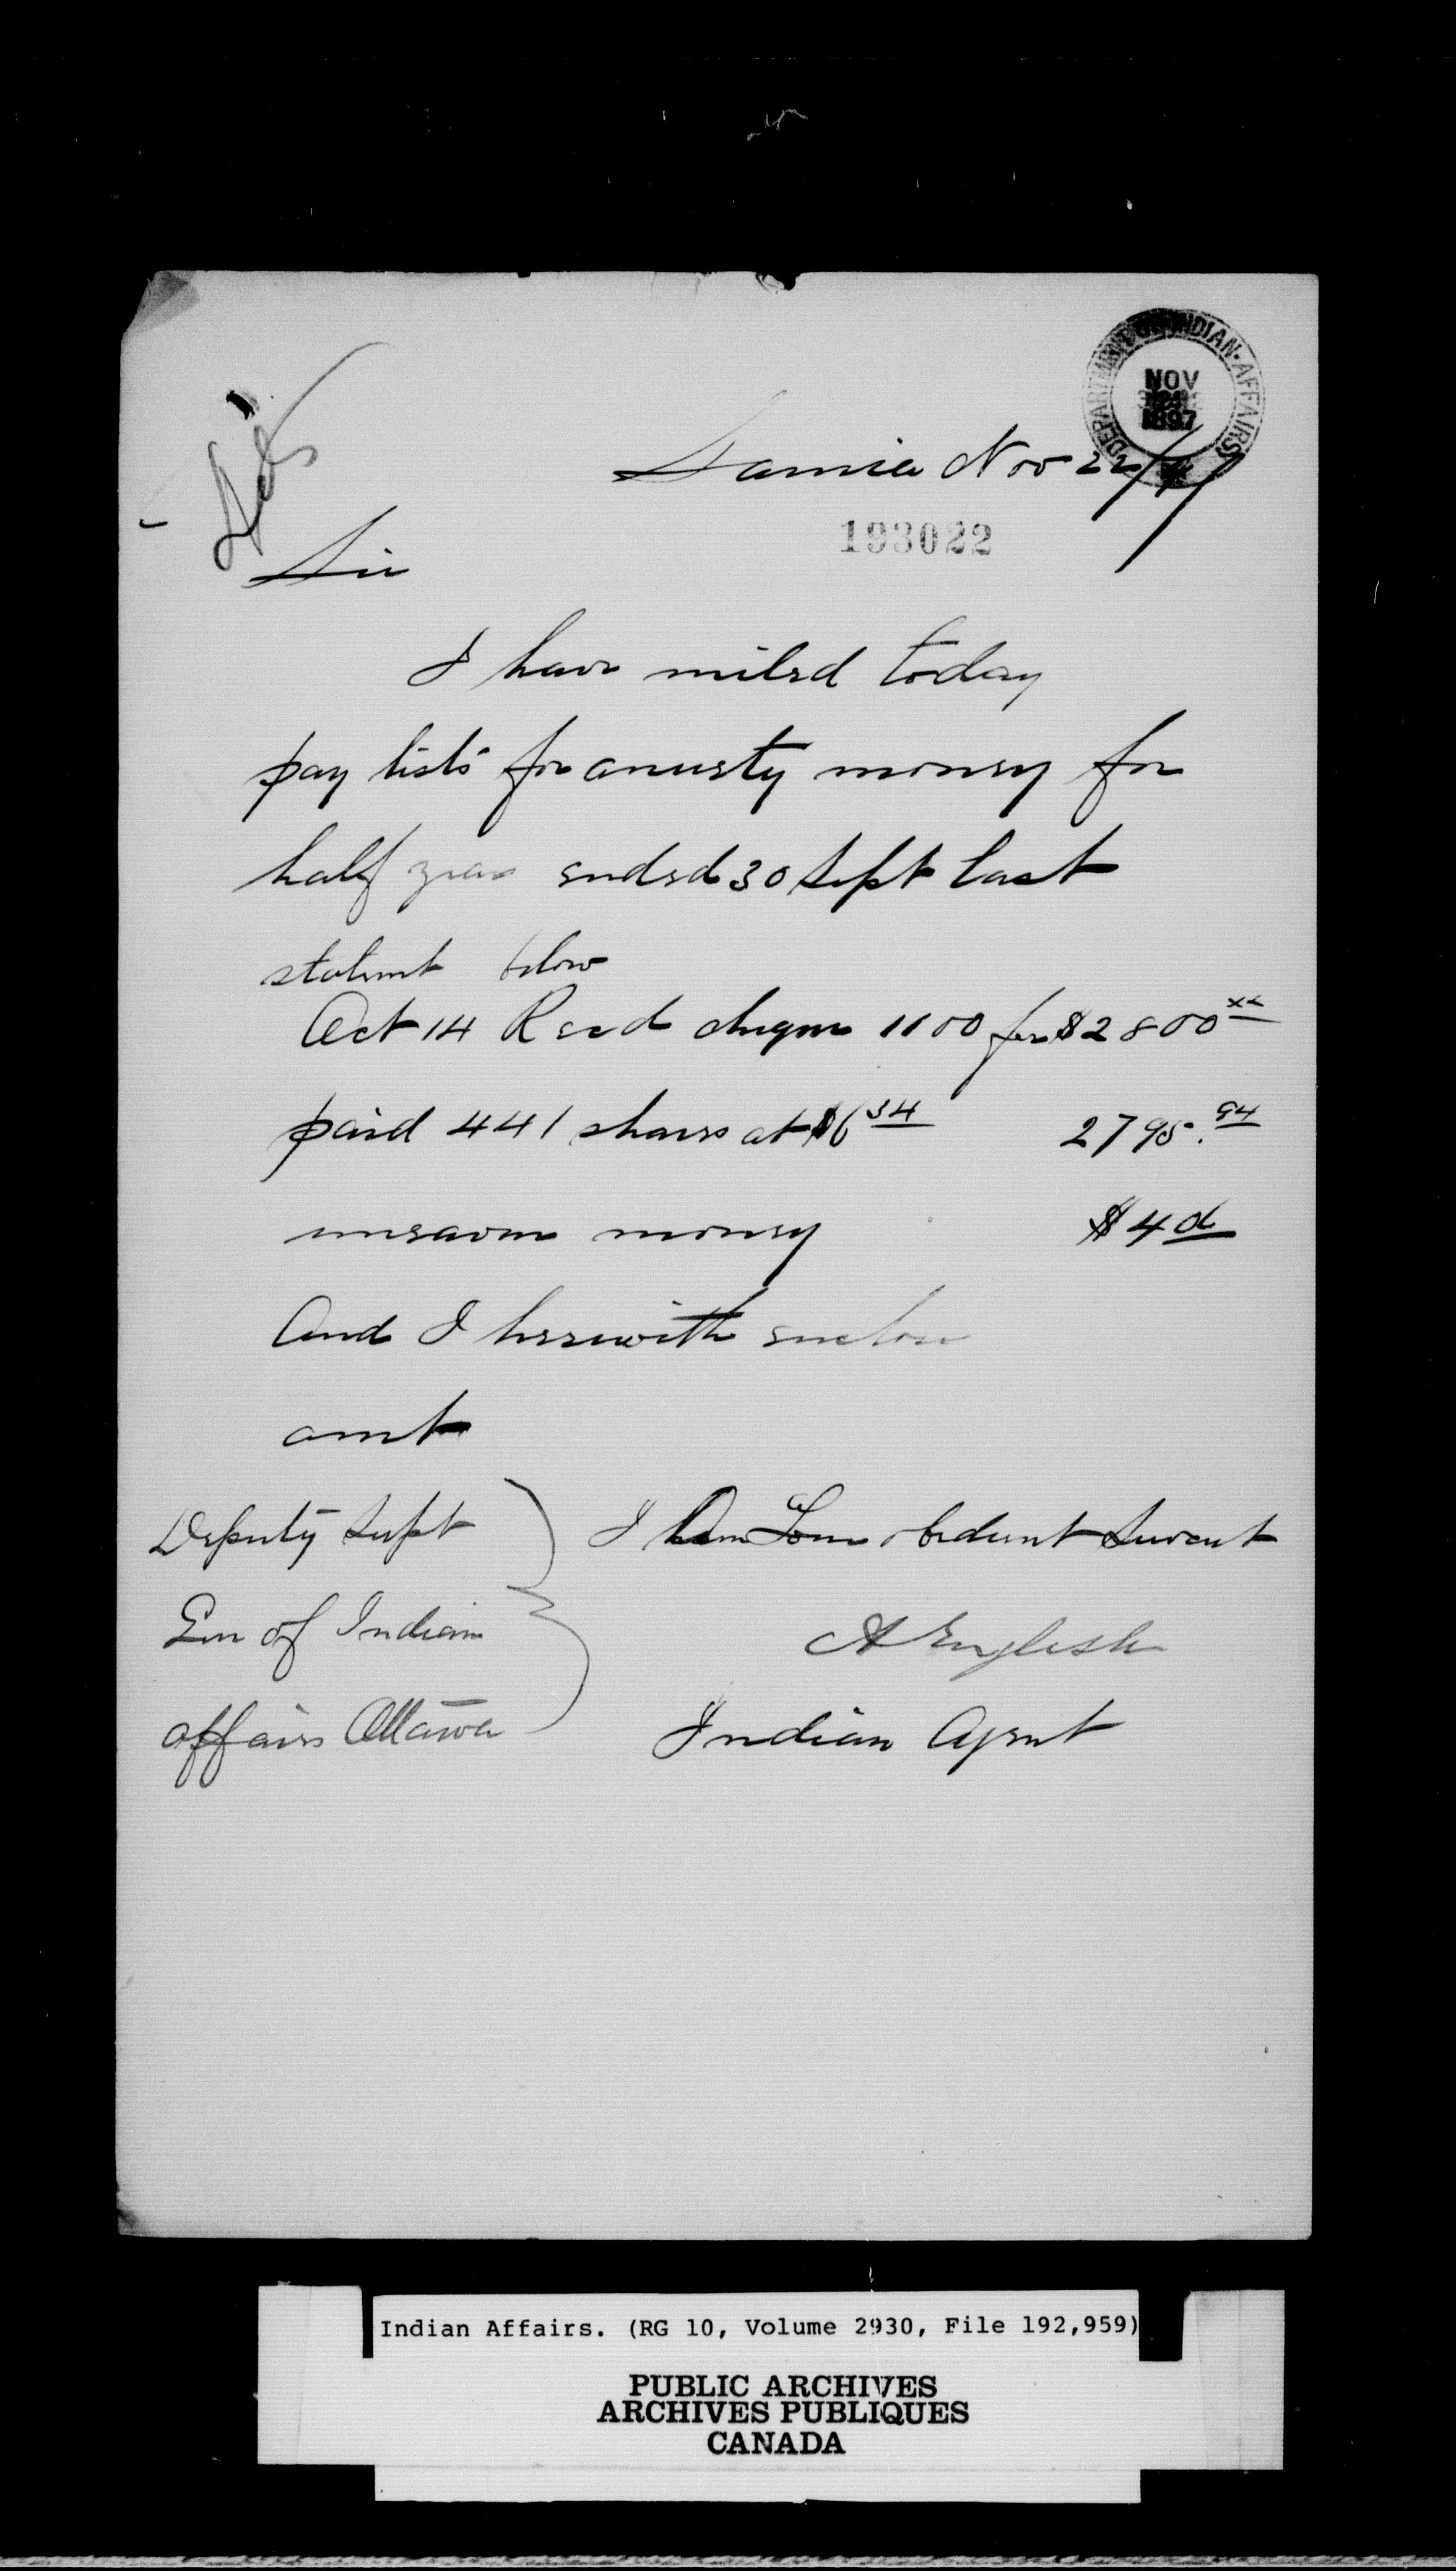 DEPARTMENT OF INDIAN AFFAIRS
NOV
1897
Sarnia Nov 22/97
193022
Sir
I have miled today
pay lists for anuety money for
half year ended 30 Sept last
statemt below
Oct 14 Recd cheque 1100 for $2800 xx
paid 441 shares at $6 34 2795.94
money $4
And I herewith enclose
amt
Deputy Supt
Gen of Indian
affairs Ottawa
I Am Your obedient Servent
A English
Indian Agent
Indian Affairs. (RG 10, Volume 2930, File 192,959)
PUBLIC ARCHIVES
ARCHIVES PUBLIQUES
CANADA